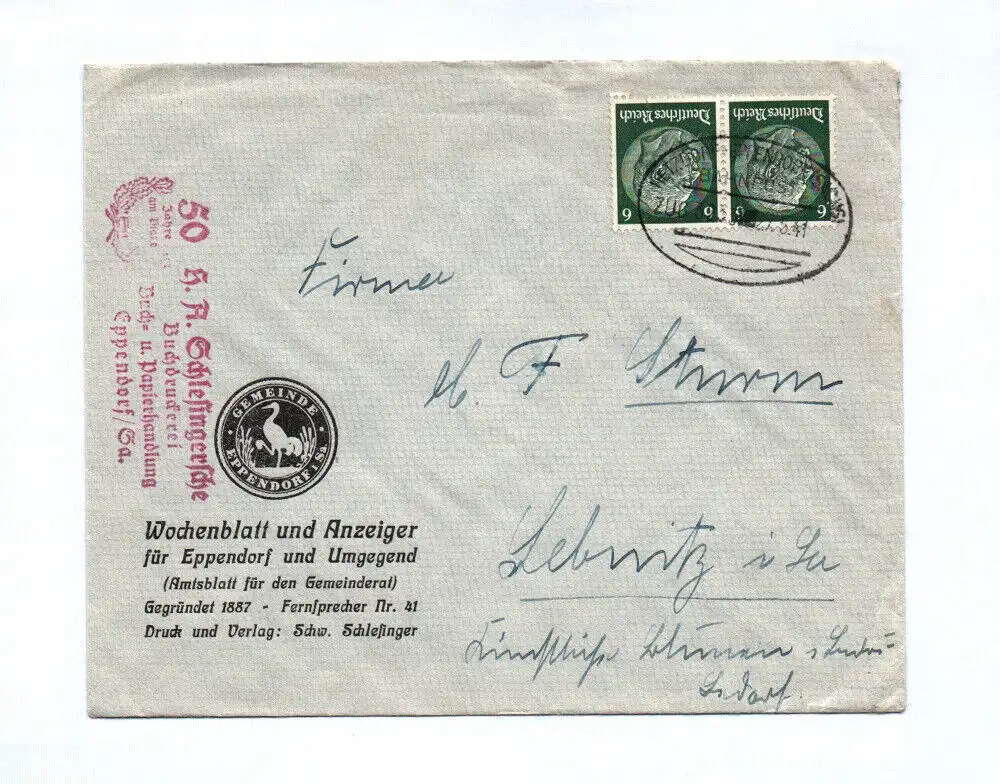 Deutsches Reich
Deutsches Reich
6 6
6 6
BAHNPOST
ZUG
.8.41
50
Jahre
H. A. Schlesingersche
Buchdruckerei
Buch- u. Papierhandlung
Eppendorf/Sa.
GEMEINDE
EPPENDORF i Sa
Wochenblatt und Anzeiger
für Eppendorf und Umgegend
(Amtsblatt für den Gemeinderat)
Gegründet 1887 - Fernsprecher Nr. 41
Druck und Verlag: Schw. Schlesinger
Firma
F Sturm
Sebnitz i Sa
Künstliche Blumen